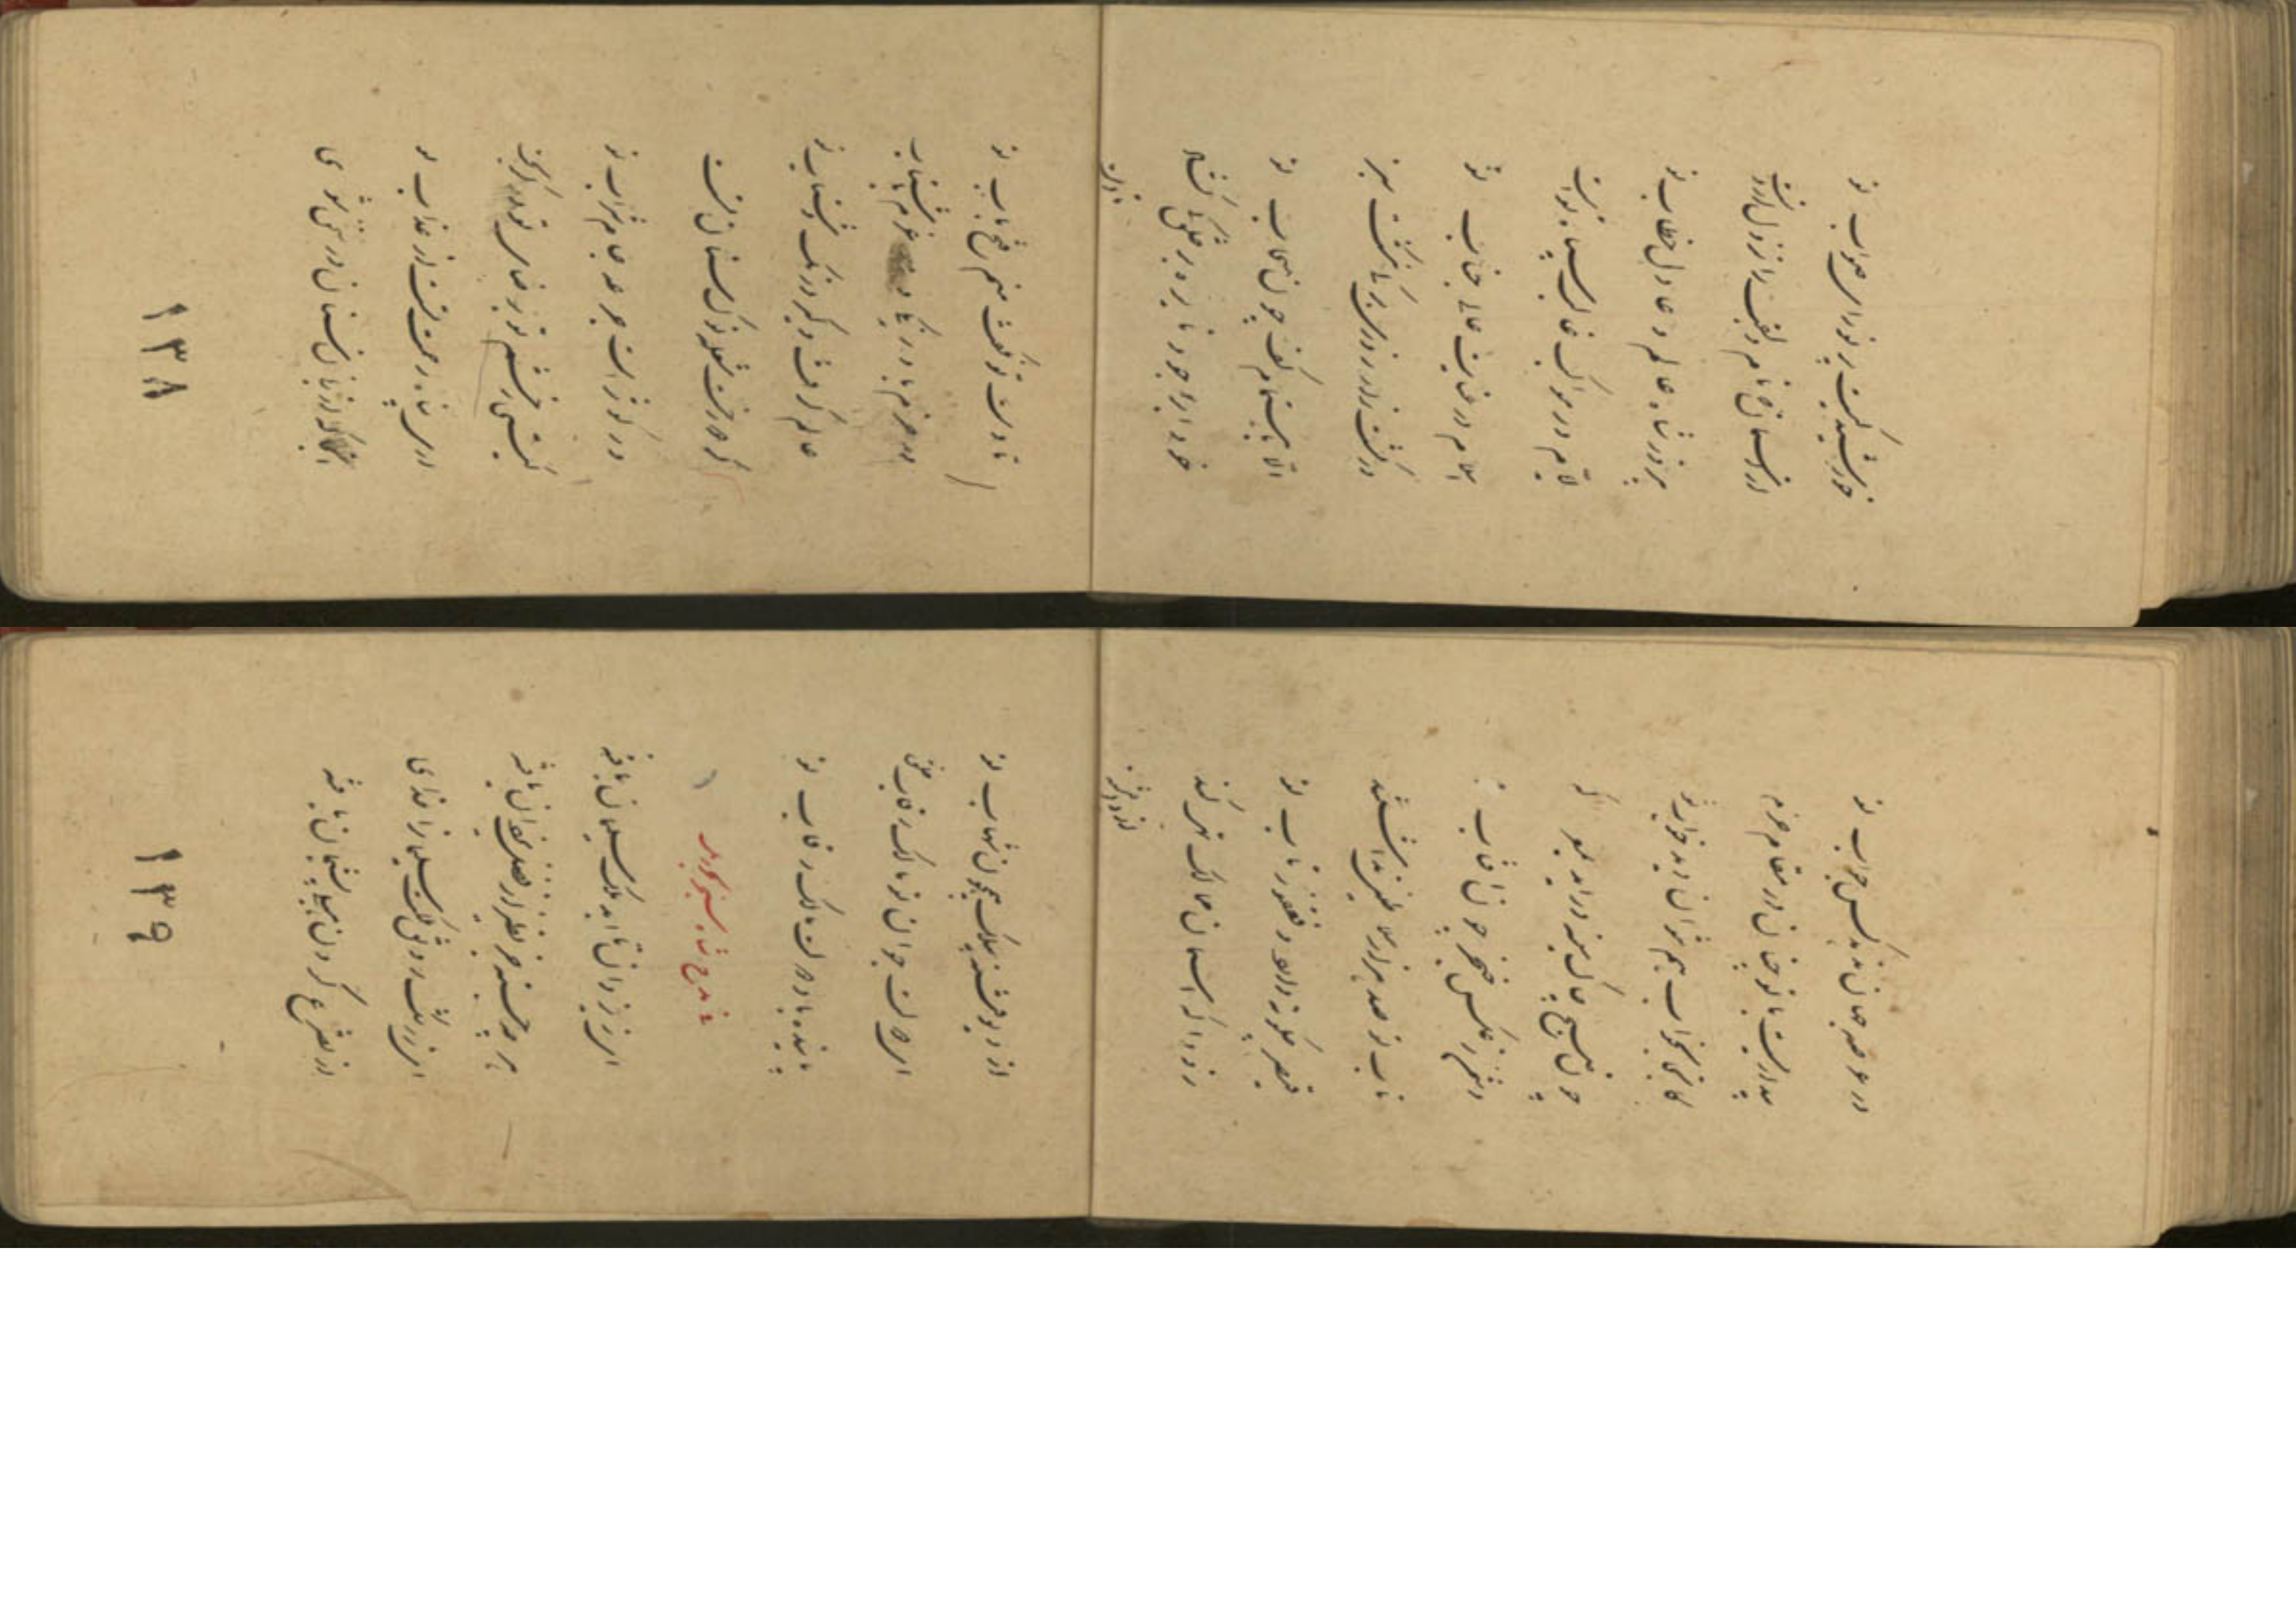 خورشید کیست پرتو رای صواب تو
از آسمان نام و لقب را نزول
شاه عالم و عادل خطاب تو
در مواکب غالب سپاه تست
اسلام در حمایت عالی جناب تو
در کشت زار بر ما نگشت سبز
الا باهتمام کف چون سحاب تو
خود ابر جود تا بره بر خلق
تا دست
تا دست تو نگفت منم فتح باب تو
در حزم با درنگ و عزم با شتاب
عالم گرفت و گیر درنگ و شتاب تو
گر شعله نوک سنان تست
در کوثر است جرعه جام شراب تو
گیتی ز خشم تو بر رضای تو در گریخت
ای رحمتست از عذاب تو
آنجا که از زبان سنان در سخن شوی
١٣٨
در عرصه جهان ندهد کس جواب تو
بیداریست با تو چنان در مقام حزم
بخواب هم نتوان دید خواب تو
چون صبح چاک سینه درآید
دشمن ز عکس خنجر چون آفتاب تو
تاب تو صد هزار سلاطین نداشتند
قیصر چگونه دارد و فغفور تاب تو
زود آ که آسمان ممالک تهی کند
از دیو فتنه
از دیو فتنه بیلک همچون شهاب تو
ای دولت جوان تو مالک رقاب خلق
پاینده باد دولت مالک رقاب تو
في مدح شاه سنجر گوید
ای ز یزدان تا ابد ملک سلیمان یافته
هر چه جسته جز نظیر از فضل یزدان یافته
ای ز رشک رونق ملکت سلیمان را خدای
از تضرع کردن پشیمان یافته
١٣٩